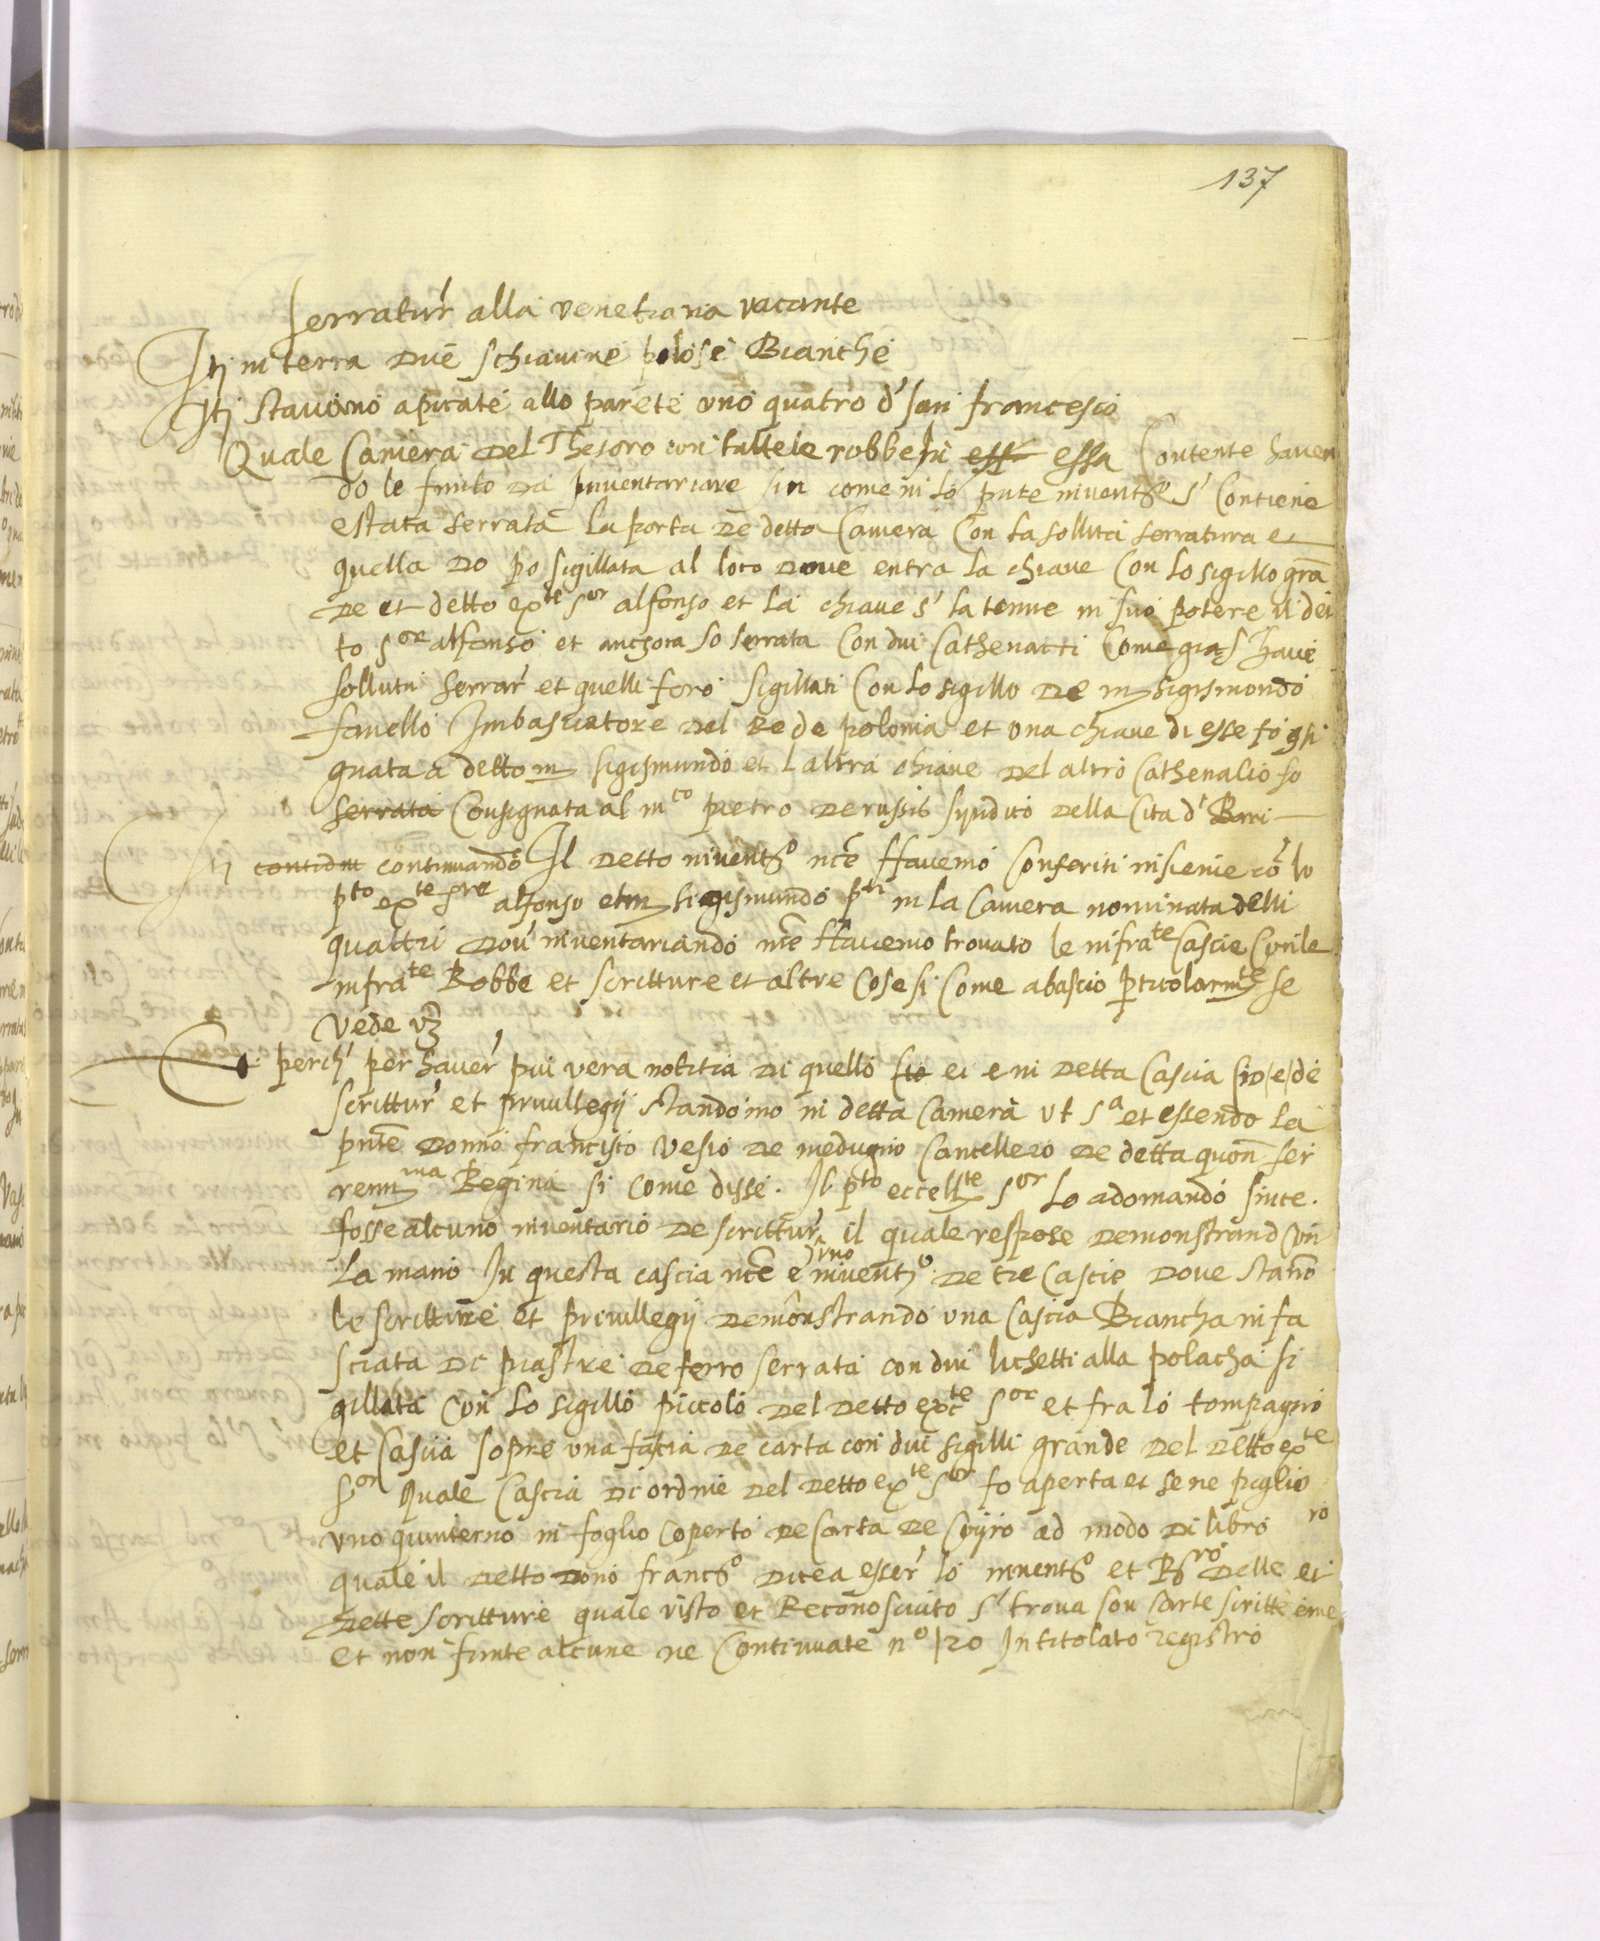 137
serratur' alla venetiana vacante
Itj in terra due schiavine pelose Bianche
Itj stavano apicate allo parete uno quatro d' san francesco
Quale Camera del Thesoro con tutte le robbe in ess essa Contente haven
do le finito da inventariare sin come in lo pnte invent.o s' Contiene
e stata serrata la porta de detta Camera Con la sollita serratura et
quella do po sigillata al loco dove entra la chiave Con lo sigillo gra
de et detto ex.te s.or alfonso et la chiave s' la tenne in suo potere il det
to s.or alfonso et anchora fo serrata Con dui Cathenacci Come gia s' have
sollutu serrar' et quelli foro sigillati Con lo sigillo de m sigismondo
fanello Imbasciatore del Re de polonia et una chiave di esse fo
gnata a detto m sigismundo et l altra chiave del altro Cathenacio fo
serrata Consegnata al m.co pietro de russis syndico della Cita d' Bari
continu continuando Il detto invent.o nce Havemo Conferiti insieme co lo
p.to ex.te s.re alfonso et m sigismundo p.ti in la Camera nominata delli
quattri dov' inventariando nce Havemo trovato le infra.te Cascie Con le
infra.te Robbe et scritture et altre Cose si Come abascio p̱ticolarm.te se
Vede vz
Et perch' per haver' piu vera notitia di quello scio ei e in detta Cascia de
scrittur' et privillegij standomo in detta Camera ut s.a et essendo la
pnte donno francisco Vesio de medugno Cancellero de detta quon̄ ser
renm.ma Regina si come disse. Il p.to eccell.te s.or lo adomando si nce
fosse alcuno inventario de scrittur' il quale respose demonstrand Con
la mano In questa cascia nce e uno invent.o de tre Cascie dove stano
le scritture et privillegij demonstrando una Cascia Biancha infa
sciata di piastre de ferro serrata con dui luchetti alla polacha si
gillata Con lo sigillo piccolo del detto ex.te s.or et fra lo tompagno
et Cascia sopre una fascia de carta con dui sigilli grande del detto ex.te
s.or Quale Cascia di ordine del detto ex.te s.or fo aperta et se ne piglio
uno quinterno in foglio coperto de Carta de Coyro ad modo di libro ro
quale il detto dono franc.o dicea esser' lo invent.o et R.ro delle
dette scritture quale visto et Reconosciuto s' trova son Carte scritte
et non finte alcune ne Continuate n.o 120 Intitolato registro